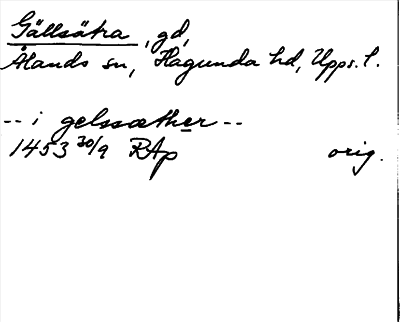 Gällsätra, gd,
Ålands sn, Hagunda hd, Upps. l.
-- i gelssæther --
1453 30/9 RAp orig.